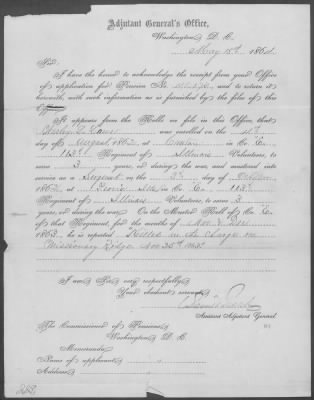 Adjutant General's Office,
Washington, D. C.
May 18th 1864.
Sir:
I have the honor to acknowledge the receipt from your Office
of application for Pension No. and to return it
herewith, with such information as is furnished by the files of this
Office.
It appears from the Rolls on file in this Office, that
was enrolled on the
day of August, 1862, at in Co. E,
113th Regiment of Illinois Volunteers, to
serve 3 years, or during the war, and mustered into
service as a Sergeant on the day of October
1862, at Ills in Co. E, 113th
Regiment of Illinois Volunteers, to serve 3
years, or during the war. On the Muster Roll of Co. E
of that Regiment, for the months of Nov & Dec
1863, he is reported Killed in the charge on
Missionary Ridge Nov 25th 1863.
I am, Sir, very respectfully,
Your obedient servant,
Assistant Adjutant General.
The Commissioner of Pensions,
Washington, D. C.
Memoranda:
Name of applicant
Address